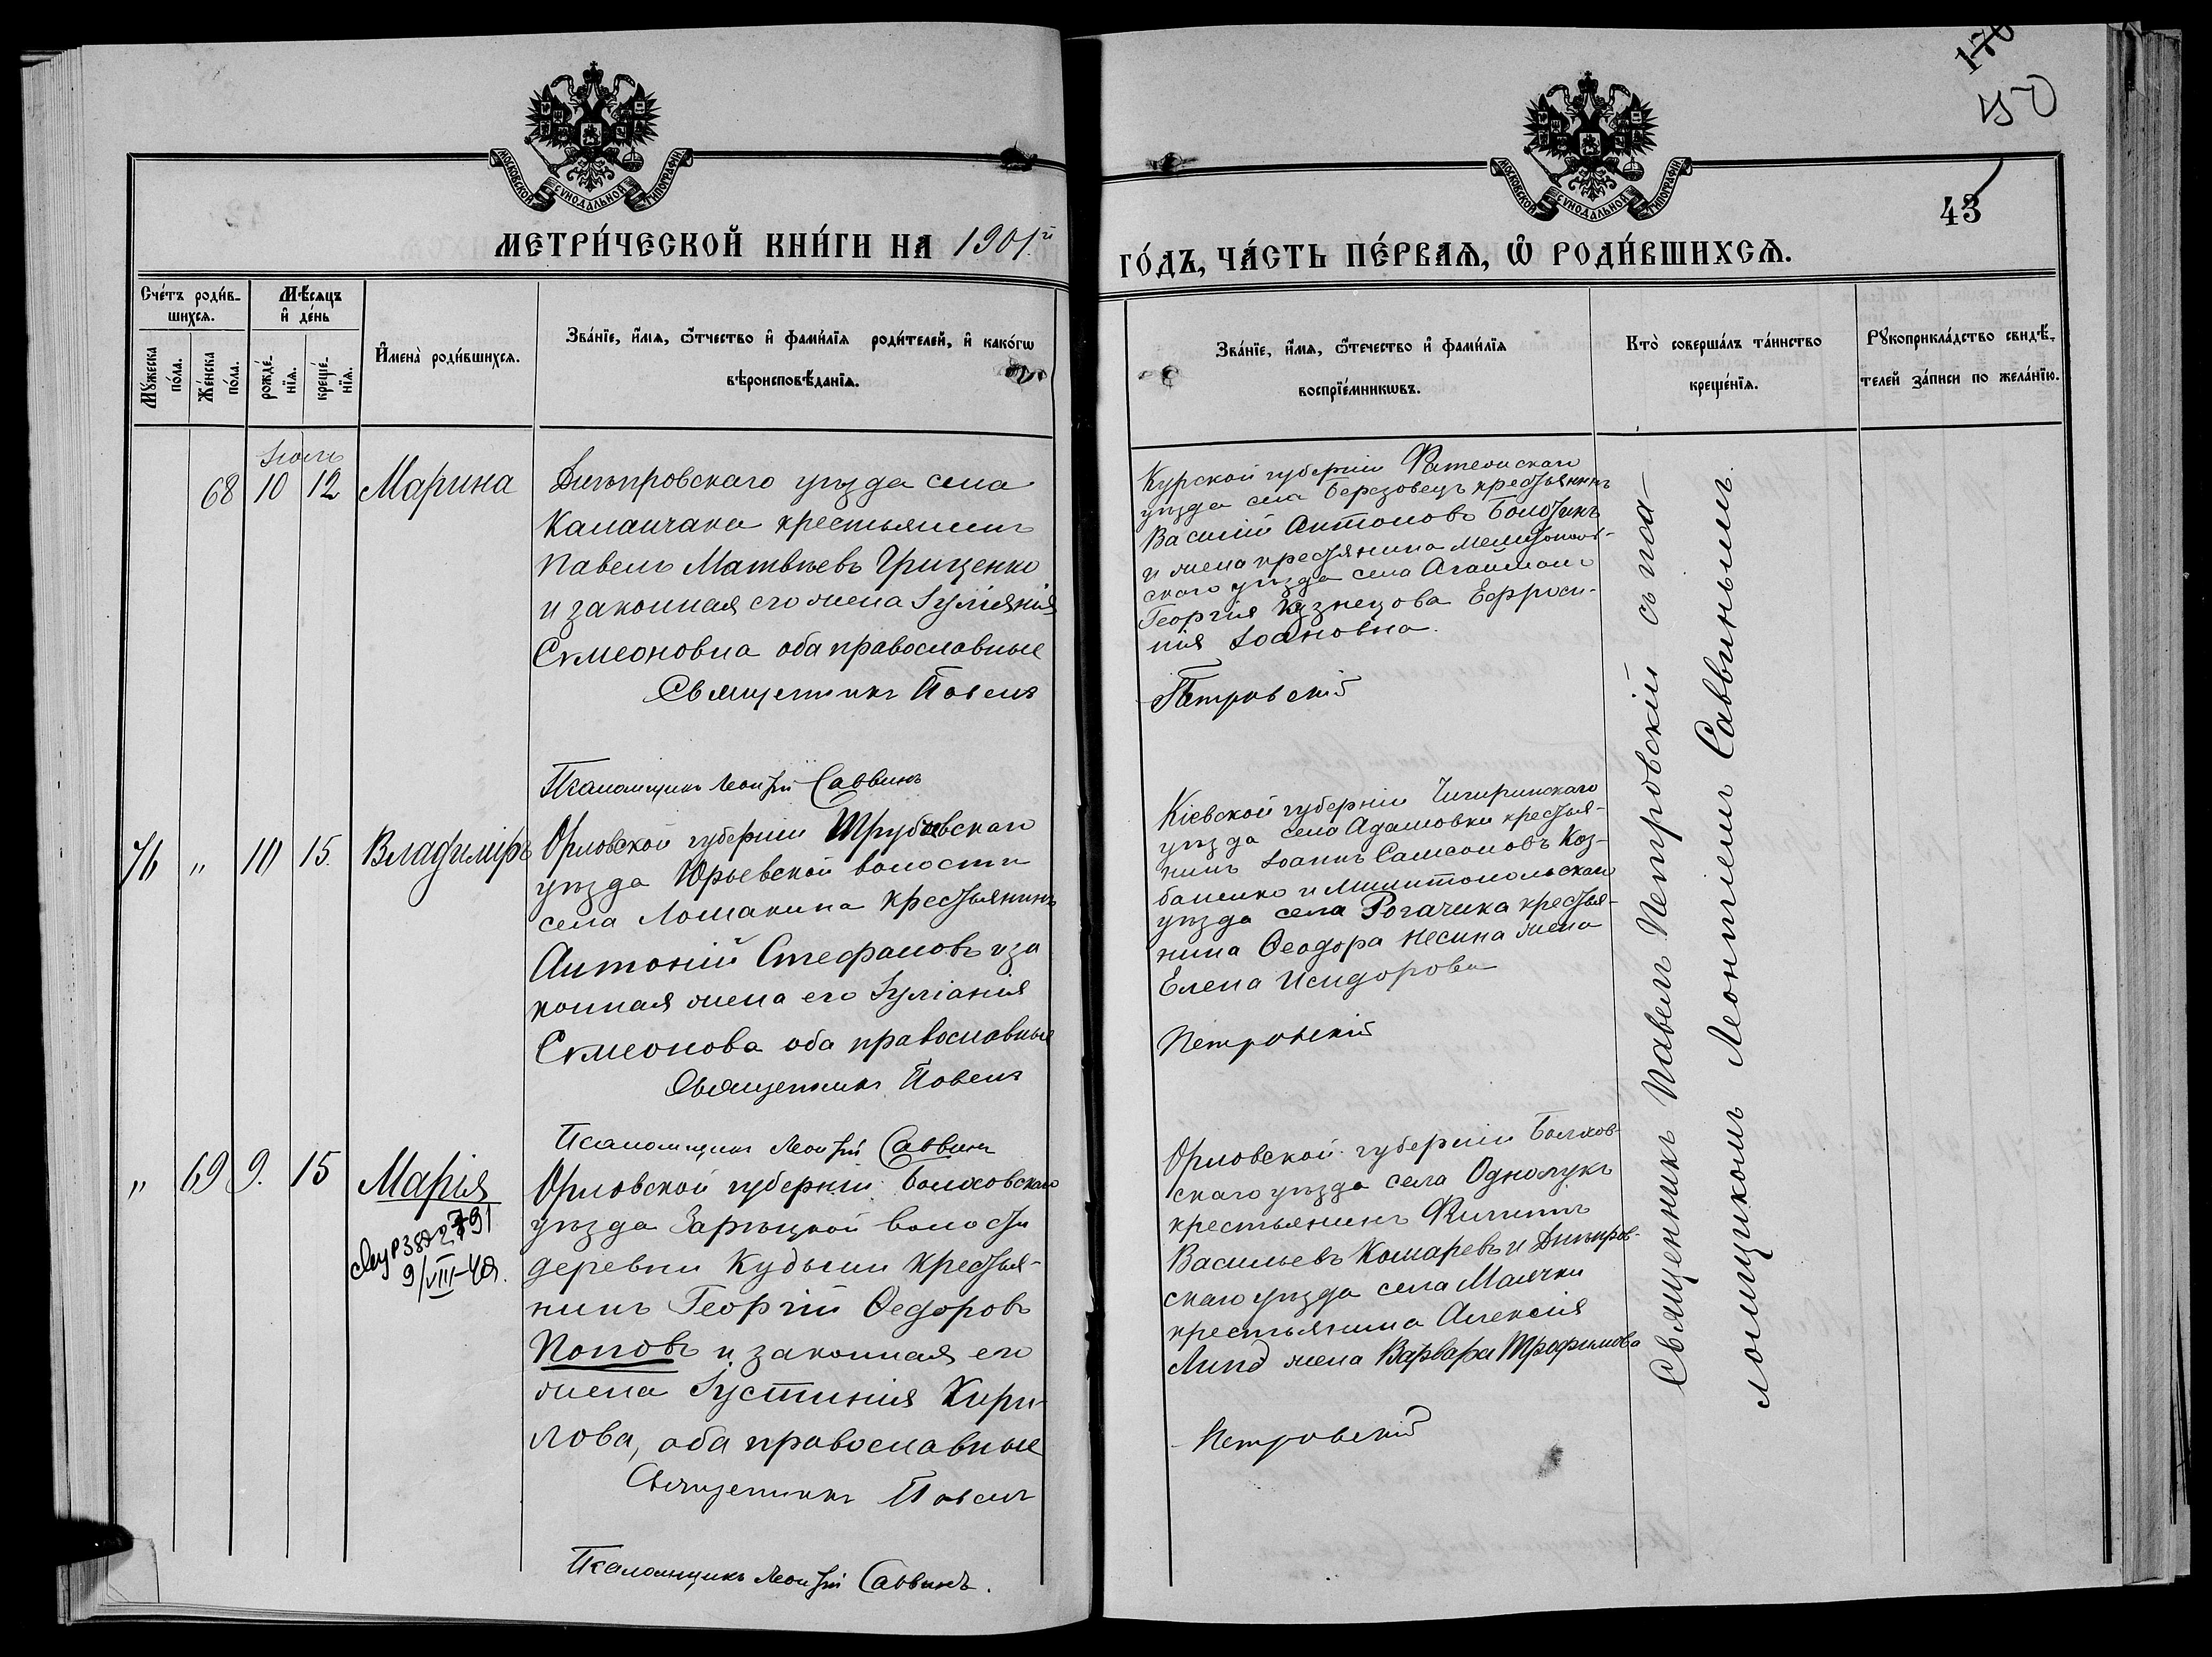 176
50
МОСКОВСКОЙ СУНОДАЛЬНОЙ ТИПОГРАФІИ
МОСКОВСКОЙ СУНОДАЛЬНОЙ ТИПОГРАФІИ
43
МЕТРИ́ЧЕСКОЙ КНИ́ГИ НА 1901й
ГО́ДЪ, ЧА́СТЬ ПЕ́РВАѦ, Ѡ РОДИ́ВШИХСѦ.
Сче́тъ роди́в-
шихсѧ.
Мꙋ́жеска по́ла.
Же́нска по́ла.
Мѣ́сѧцъ
и҆ де́нь
рожде́нїѧ.
креще́нїѧ.
И҆мена̀ роди́вшихсѧ.
Зва́нїе, и҆́мѧ, ѻ҆́тчество и҆ фами́лїѧ роди́телей, и҆ како́гѡ
вѣроисповѣ́данїѧ.
Зва́нїе, и҆́мѧ, ѻ҆те́чество и҆ фами́лїѧ
воспрїе́мникѡвъ.
Кто̀ соверша́лъ та́инство
креще́нїѧ.
Рꙋкоприкла́дство свидѣ́-
телей за́писи по жела́нїю.
Іюль
68 10 12 Марина
Днѣпровскаго уѣзда села
Каланчака крестьянинъ
Павелъ Матвѣевъ Гриценко
и законная его жена Іуліянія
Сѵмеоновна оба православные
Священникъ Павелъ
Псаломщикъ Леонтій Саввинъ
Курской губерніи Фатежскаго
уѣзда села Березовецъ крестьянинъ
Василій Антоновъ
и жена крестьянина Мелитополь-
скаго уѣзда села Агаймана
Георгія Кузнецова Ефроси-
нія Іоановна.
Петровскій
76 " 10 15. Владиміръ
Орловской губерніи Трубчевскаго
уѣзда Юрьевской волости
села Ломакина крестьянинъ
Антоній Стефановъ и за
конная жена его Іуліанія
Сѵмеонова оба православные
Священникъ Павелъ
Псаломщикъ Леонтій Саввинъ
Кіевской губерніи Чигиринскаго
уѣзда села Адамовки крестья-
нинъ Іоаннъ Самсоновъ Коз-
баненко и Мелитопольскаго
уѣзда села Рогачика крестья-
нина Ѳеодора Несина жена
Елена Исидорова
Петровскій
" 69 9. 15 Марія
9/VIII-49.
Орловской губерніи Болховскаго
уѣзда Зарѣцкой волости
деревни Кудыни крестья-
нинъ Георгій Ѳедоровъ
Поповъ и законная его
жена Іустинія Кири-
лова, оба православные
Священникъ Павелъ
Псаломщикъ Леонтій Саввинъ.
Орловской губерніи Болхов-
скаго уѣзда села Однолукъ
крестьянинъ Филиппъ
Васильевъ Комаревъ и Днѣпров-
скаго уѣзда села Маячки
крестьянина Алексія
Липо жена Варвара Трофимова
Петровскій
Священникъ Павелъ Петровскій съ пса-
ломщикомъ Леонтіемъ Саввинымъ.